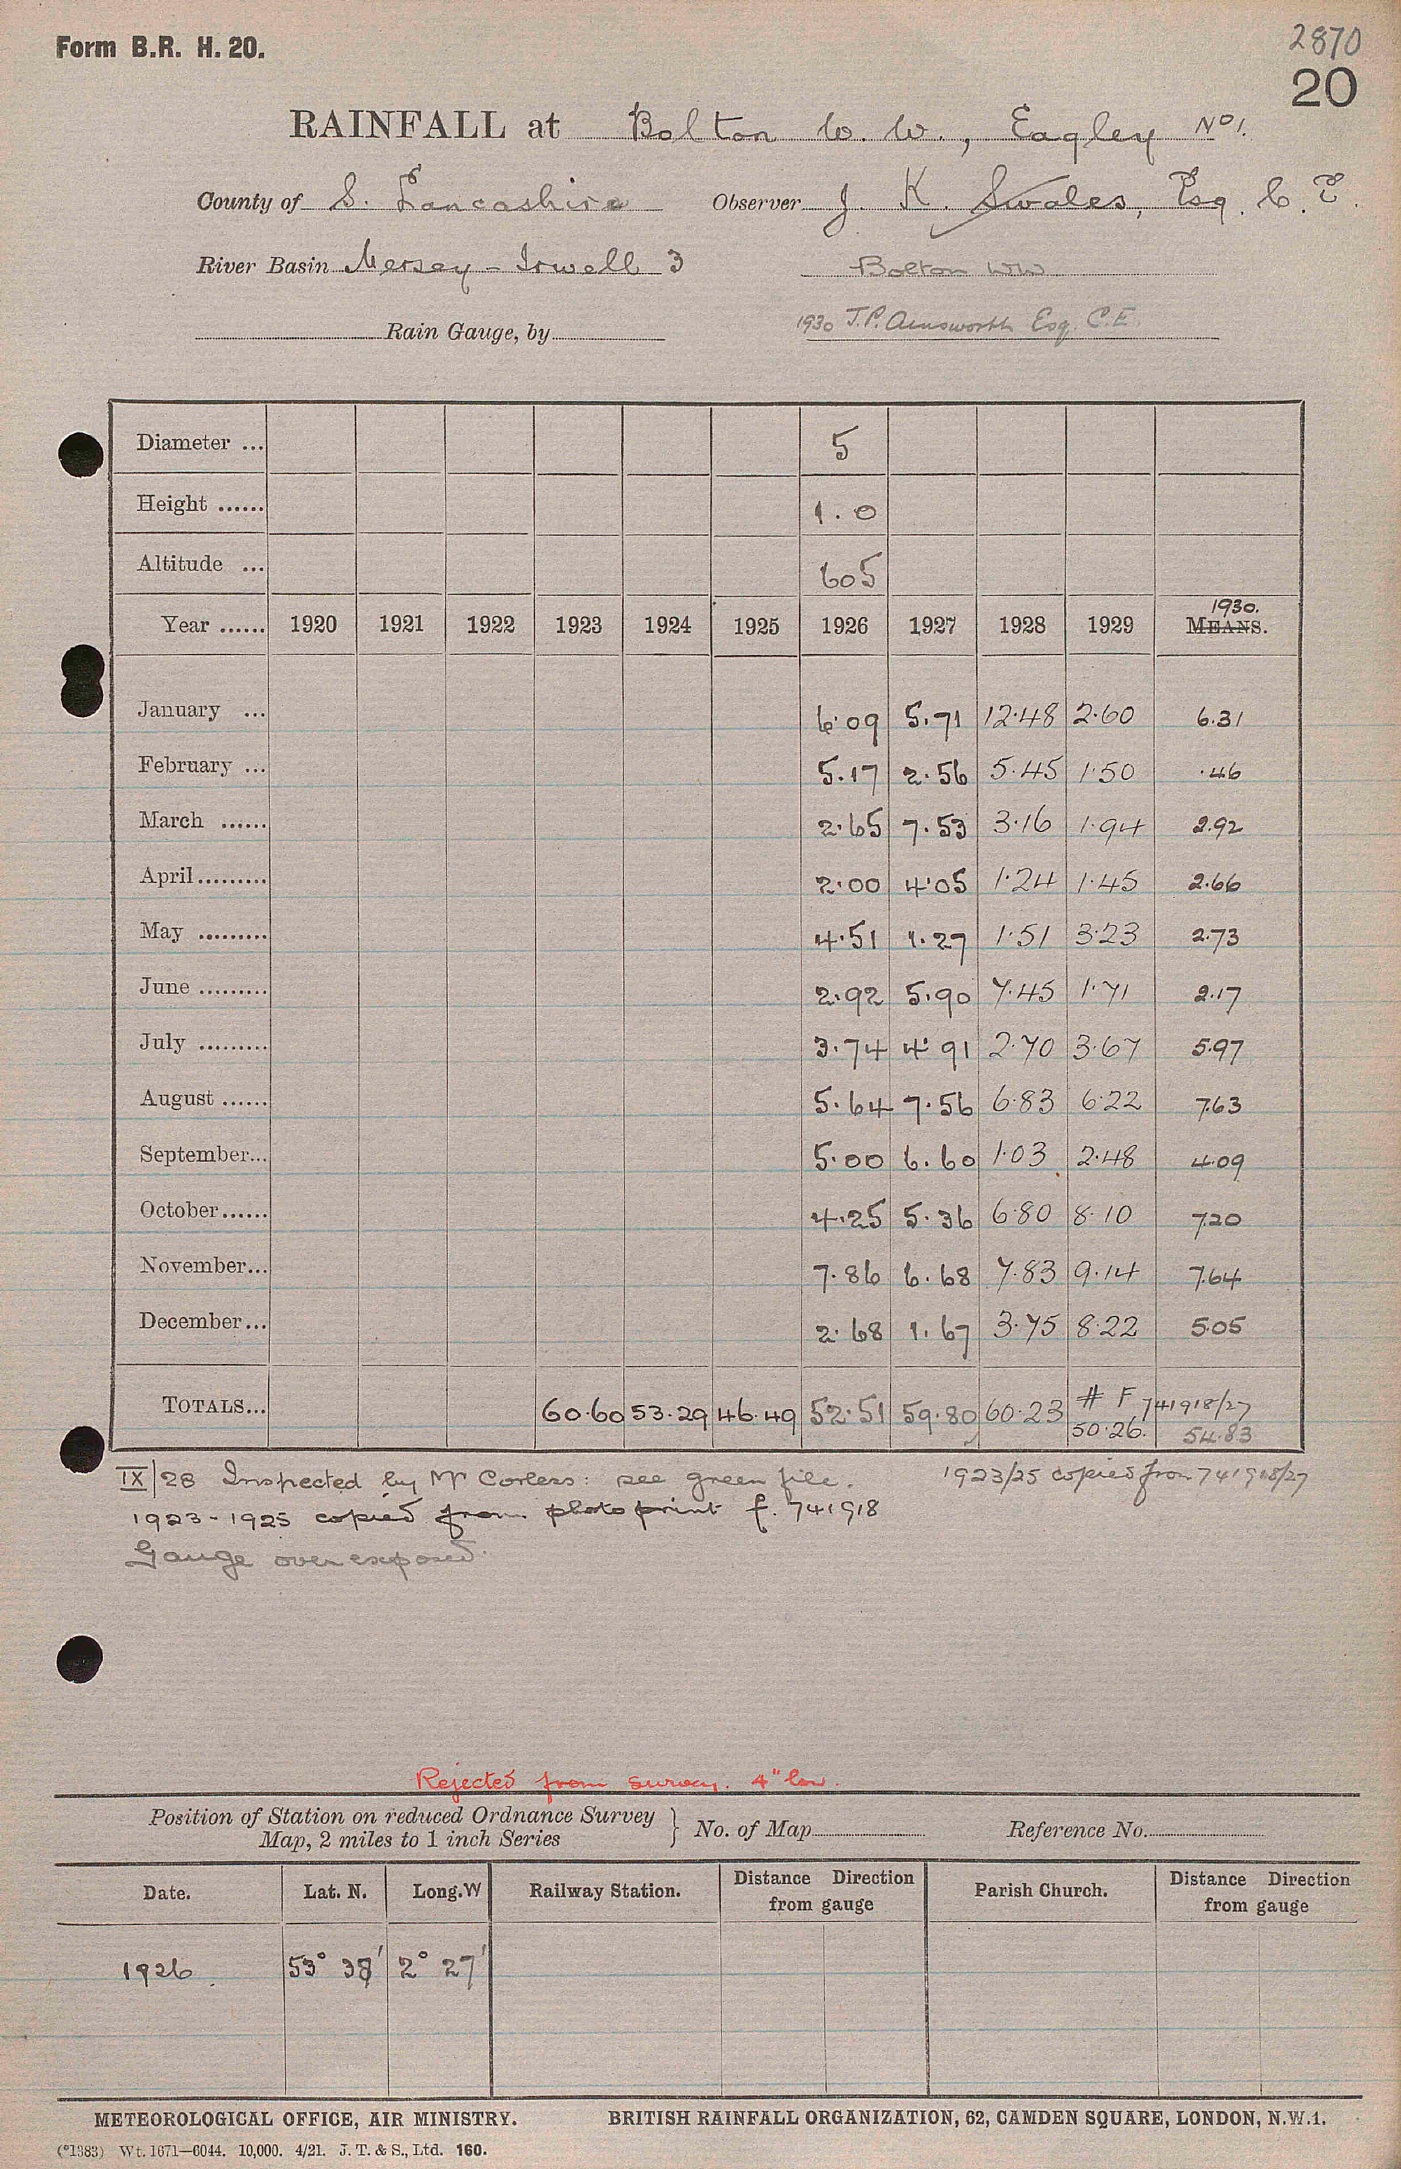 Form B.R. H. 20.
2870
20
RAINFALL at Bolton W. W., Eagley No 1.
County of S. Lancashire Observer J. K. Swales, Esq. C. E.
River Basin Mersey - Irwell 3 Bolton WW
Rain Gauge, by 1930 J.P. Ainsworth Esq. C.E.
Diameter ... 5
Height ...... 1.0
Altitude ... 605
1930.
Year ...... 1920 1921 1922 1923 1924 1925 1926 1927 1928 1929 MEANS.
January ... 6.09 5.71 12.48 2.60 6.31
February ... 5.17 2.56 5.45 1.50 .46
March ...... 2.65 7.53 3.16 1.94 2.92
April......... 2.00 4.05 1.24 1.45 2.66
May ......... 4.51 1.27 1.51 3.23 2.73
June ......... 2.92 5.90 7.45 1.71 2.17
July ......... 3.74 4.91 2.70 3.67 5.97
August ...... 5.64 7.56 6.83 6.22 7.63
September... 5.00 6.60 1.03 2.48 4.09
October...... 4.25 5.36 6.80 8.10 7.20
November... 7.86 6.68 7.83 9.14 7.64
December... 2.68 1.67 3.75 8.22 5.05
# F 741918/27
TOTALS... 60.60 53.29 46.49 52.51 59.80 60.23 50.26. 54.83
IX/28 Inspected by Mr Corless: see green file. 1923/25 copied from 741918/27
1923-1925 copied from photo print f. 741918
Gauge over exposed.
Rejected from survey. 4" low.
Position of Station on reduced Ordnance Survey
Map, 2 miles to 1 inch Series } No. of Map Reference No.
Date. Lat. N. Long. W Railway Station. Distance Direction from gauge Parish Church. Distance Direction from gauge
1926. 53° 38' 2° 27'
METEOROLOGICAL OFFICE, AIR MINISTRY. BRITISH RAINFALL ORGANIZATION, 62, CAMDEN SQUARE, LONDON, N.W.1.
(*1383) Wt. 1671—6044. 10,000. 4/21. J. T. & S., Ltd. 160.